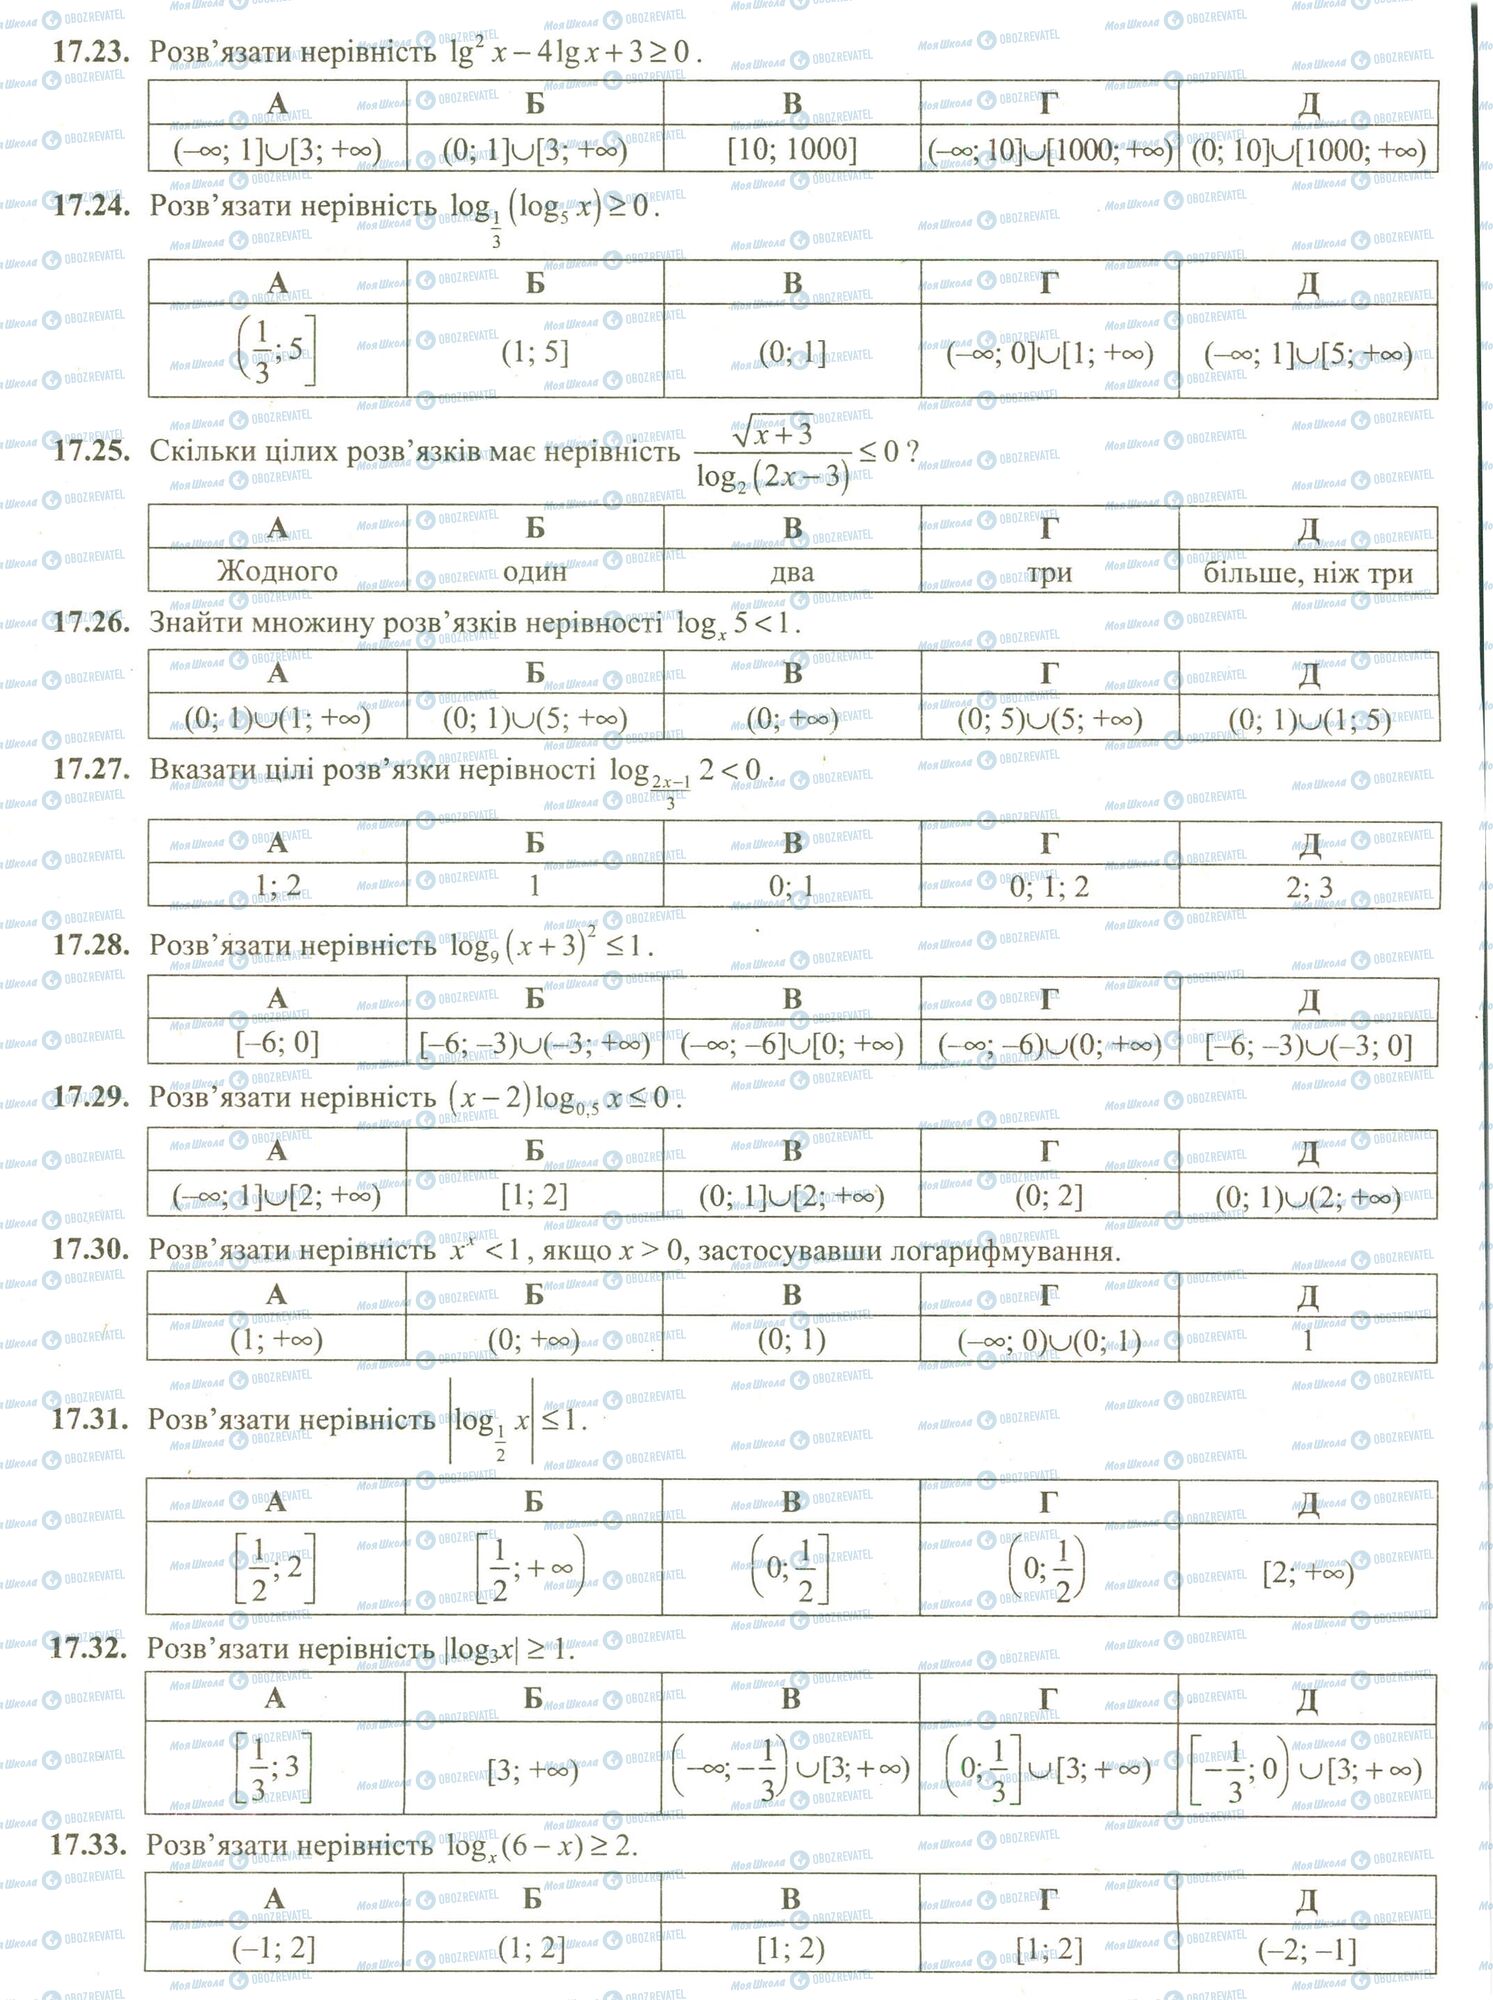 17.23. Розв’язати нерівність lg² x − 4 lg x + 3 ≥ 0.
А Б В Г Д
(–∞; 1]∪[3; +∞) (0; 1]∪[3; +∞) [10; 1000] (–∞; 10]∪[1000; +∞) (0; 10]∪[1000; +∞)
17.24. Розв’язати нерівність log_{1/3} (log₅ x) ≥ 0.
А Б В Г Д
(1/3; 5] (1; 5] (0; 1] (–∞; 0]∪[1; +∞) (–∞; 1]∪[5; +∞)
17.25. Скільки цілих розв’язків має нерівність √(x + 3) / log₂ (2x − 3) ≤ 0 ?
А Б В Г Д
Жодного один два три більше, ніж три
17.26. Знайти множину розв’язків нерівності logₓ 5 < 1.
А Б В Г Д
(0; 1)∪(1; +∞) (0; 1)∪(5; +∞) (0; +∞) (0; 5)∪(5; +∞) (0; 1)∪(1; 5)
17.27. Вказати цілі розв’язки нерівності log_{(2x−1)/3} 2 < 0.
А Б В Г Д
1; 2 1 0; 1 0; 1; 2 2; 3
17.28. Розв’язати нерівність log₉ (x + 3)² ≤ 1.
А Б В Г Д
[–6; 0] [–6; –3)∪(–3; +∞) (–∞; –6]∪[0; +∞) (–∞; –6)∪(0; +∞) [–6; –3)∪(–3; 0]
17.29. Розв’язати нерівність (x − 2) log₀,₅ x ≤ 0.
А Б В Г Д
(–∞; 1]∪[2; +∞) [1; 2] (0; 1]∪[2; +∞) (0; 2] (0; 1)∪(2; +∞)
17.30. Розв’язати нерівність xˣ < 1, якщо x > 0, застосувавши логарифмування.
А Б В Г Д
(1; +∞) (0; +∞) (0; 1) (–∞; 0)∪(0; 1) 1
17.31. Розв’язати нерівність |log_{1/2} x| ≤ 1.
А Б В Г Д
[1/2; 2] [1/2; +∞) (0; 1/2] (0; 1/2) [2; +∞)
17.32. Розв’язати нерівність |log₃x| ≥ 1.
А Б В Г Д
[1/3; 3] [3; +∞) (–∞; –1/3)∪[3; +∞) (0; 1/3]∪[3; +∞) [–1/3; 0)∪[3; +∞)
17.33. Розв’язати нерівність logₓ (6 – x) ≥ 2.
А Б В Г Д
(–1; 2] (1; 2] [1; 2) [1; 2] (–2; –1]
МояШкола OBOZREVATEL